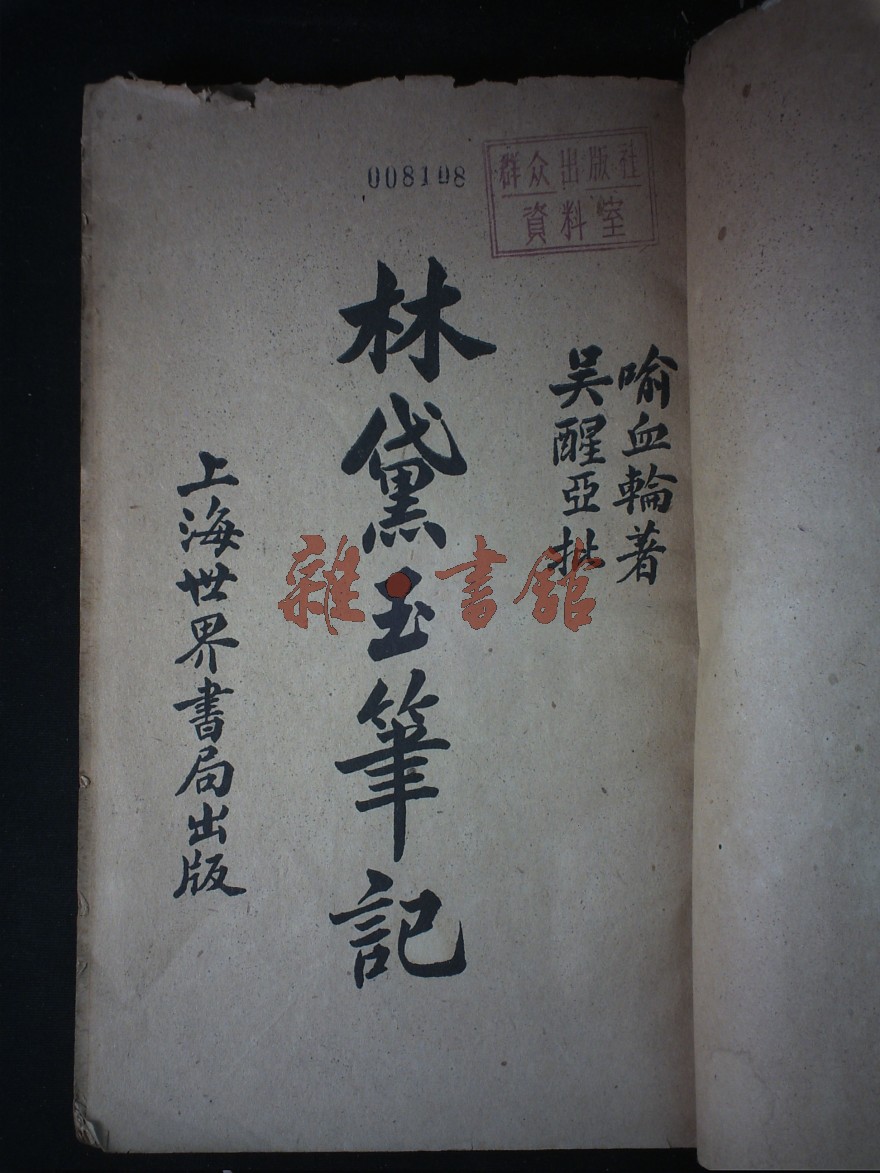 008108
群众出版社
資料室
喻血輪著
吴醒亞批
林黛玉筆記
上海世界書局出版
雜·書館